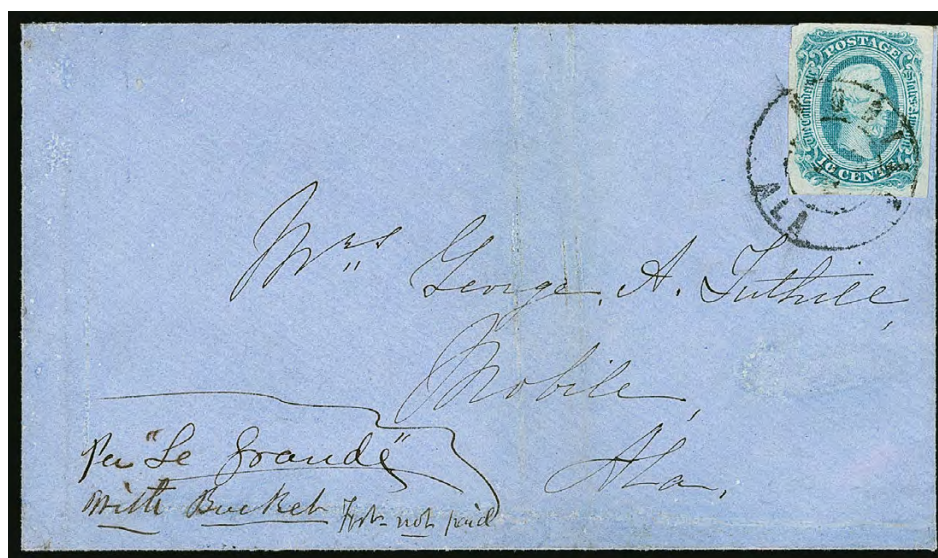 POSTAGE
The Confederate States of America
10 CENTS
ALA
Mrs George, A. Tuthill,
Mobile,
Ala.
Per "Le Grande"
with Bucket Frt not paid